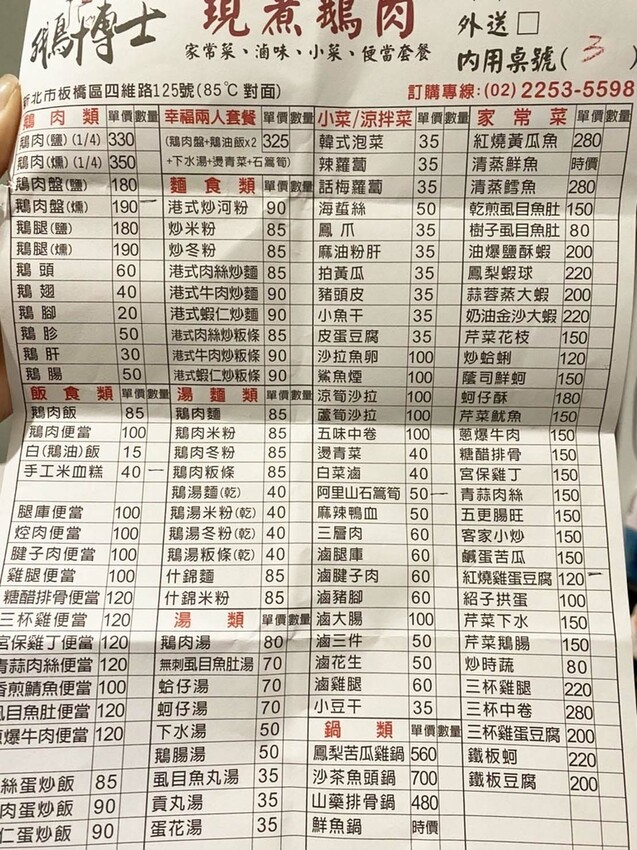 鵝博士
現煮鵝肉
家常菜、滷味、小菜、便當套餐
外送□
內用桌號( 3 )
新北市板橋區四維路125號(85℃ 對面)
訂購專線:(02) 2253-5598
鵝肉類 單價 數量
鵝肉(鹽) (1/4) 330
鵝肉(燻) (1/4) 350
鵝肉盤(鹽) 180
鵝肉盤(燻) 190 一
鵝腿(鹽) 180
鵝腿(燻) 190
鵝頭 60
鵝翅 40
鵝腳 20
鵝胗 50
鵝肝 30
鵝腸 50
飯食類 單價 數量
鵝肉飯 85
鵝肉便當 100
白(鵝油)飯 15
手工米血糕 40 一
腿庫便當 100
焢肉便當 100
腱子肉便當 100
雞腿便當 100
糖醋排骨便當 120
三杯雞便當 120
宮保雞丁便當 120
青蒜肉絲便當 120
香煎鯖魚便當 100
虱目魚肚便當 120
蔥爆牛肉便當 120
絲蛋炒飯 85
肉蛋炒飯 90
仁蛋炒飯 90
幸福兩人套餐 單價 數量
(鵝肉盤+鵝油飯x2 325
+下水湯+燙青菜+石篙筍)
麵食類 單價 數量
港式炒河粉 90
炒米粉 85
炒冬粉 85
港式肉絲炒麵 85
港式牛肉炒麵 90
港式蝦仁炒麵 90
港式肉絲炒粄條 85
港式牛肉炒粄條 90
港式蝦仁炒粄條 90
湯麵類 單價 數量
鵝肉麵 85
鵝肉米粉 85
鵝肉冬粉 85
鵝肉粄條 85
鵝湯麵(乾) 40
鵝湯米粉(乾) 40
鵝湯冬粉(乾) 40
鵝湯粄條(乾) 40
什錦麵 85
什錦米粉 85
湯類 單價 數量
鵝肉湯 80
無刺虱目魚肚湯 70
蛤仔湯 70
蚵仔湯 70
下水湯 50
鵝腸湯 50
虱目魚丸湯 35
貢丸湯 35
蛋花湯 35
小菜/涼拌菜 單價 數量
韓式泡菜 35
辣蘿蔔 35
話梅蘿蔔 35
海蜇絲 50
鳳爪 35
麻油粉肝 35
拍黃瓜 35
豬頭皮 35
小魚干 35
皮蛋豆腐 35
沙拉魚卵 100
鯊魚煙 100
涼筍沙拉 100
蘆筍沙拉 100
五味中卷 100
燙青菜 40
白菜滷 40
阿里山石篙筍 50 一
麻辣鴨血 50
三層肉 60
滷腿庫 60
滷腱子肉 60
滷豬腳 60
滷大腸 100
滷三件 50
滷花生 50
滷雞腿 60
小豆干 35
鍋類 單價 數量
鳳梨苦瓜雞鍋 560
沙茶魚頭鍋 700
山藥排骨鍋 480
鮮魚鍋 時價
家常菜 單價 數量
紅燒黃瓜魚 280
清蒸鮮魚 時價
清蒸鱈魚 280
乾煎虱目魚肚 150
樹子虱目魚肚 80
油爆鹽酥蝦 200
鳳梨蝦球 220
蒜蓉蒸大蝦 200
奶油金沙大蝦 220
芹菜花枝 150
炒蛤蜊 120
蔭司鮮蚵 150
蚵仔酥 180
芹菜魷魚 150
蔥爆牛肉 150
糖醋排骨 150
宮保雞丁 150
青蒜肉絲 150
五更腸旺 150
客家小炒 150
鹹蛋苦瓜 150
紅燒雞蛋豆腐 120 一
紹子拱蛋 100
芹菜下水 150
芹菜鵝腸 150
炒時蔬 80
三杯雞腿 220
三杯中卷 280
三杯雞蛋豆腐 200
鐵板蚵 220
鐵板豆腐 200